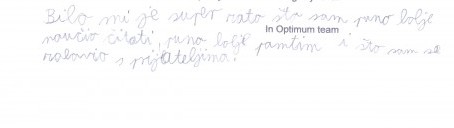 Bilo mi je super zato što sam puno bolje
In Optimum team
naučio čitati, puno bolje pamtim i što sam se
zabavio s prijateljima!